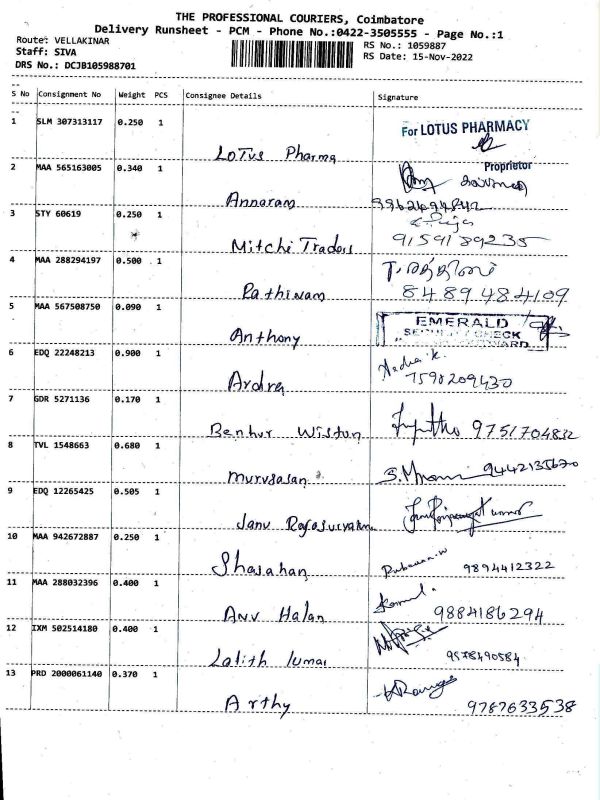 THE PROFESSIONAL COURIERS, Coimbatore
Delivery Runsheet - PCM - Phone No.:0422-3505555 - Page No.:1
Route: VELLAKINAR
Staff: SIVA
DRS No.: DCJB105988701
RS No.: 1059887
RS Date: 15-Nov-2022
S No Consignment No Weight PCS Consignee Details Signature
1 SLM 307313117 0.250 1 Lotus Pharma For LOTUS PHARMACY
Proprietor
2 MAA 565163005 0.340 1 Annaram
3 STY 60619 0.250 1 Mitchi Traders 9159189235
4 MAA 288294197 0.500 1 Rathinam 8489484109
5 MAA 567508750 0.090 1 Anthony EMERALD
SECURITY CHECK
6 EDQ 22248213 0.900 1 Ardra 7598209430
7 GDR 5271136 0.170 1 Benhur Wistun 9751704832
8 TVL 1548663 0.680 1 Murugasan 9442135670
9 EDQ 12265425 0.505 1 Janu
10 MAA 942672887 0.250 1 Shajahan 9894412322
11 MAA 288032396 0.400 1 Anu Halan 9884186294
12 IXM 502514180 0.400 1 Lalith kumar 9578490584
13 PRD 2000061140 0.370 1 Arthy 9787633538